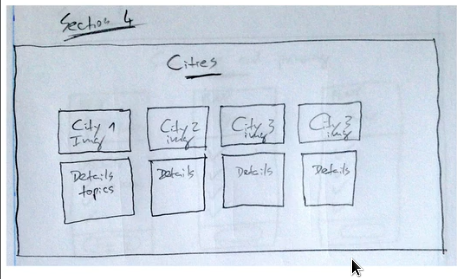 Section 4
Cities
City 1
Img
City 2
img
City 3
img
City 3
img
Details
topics
Details
Details
Details